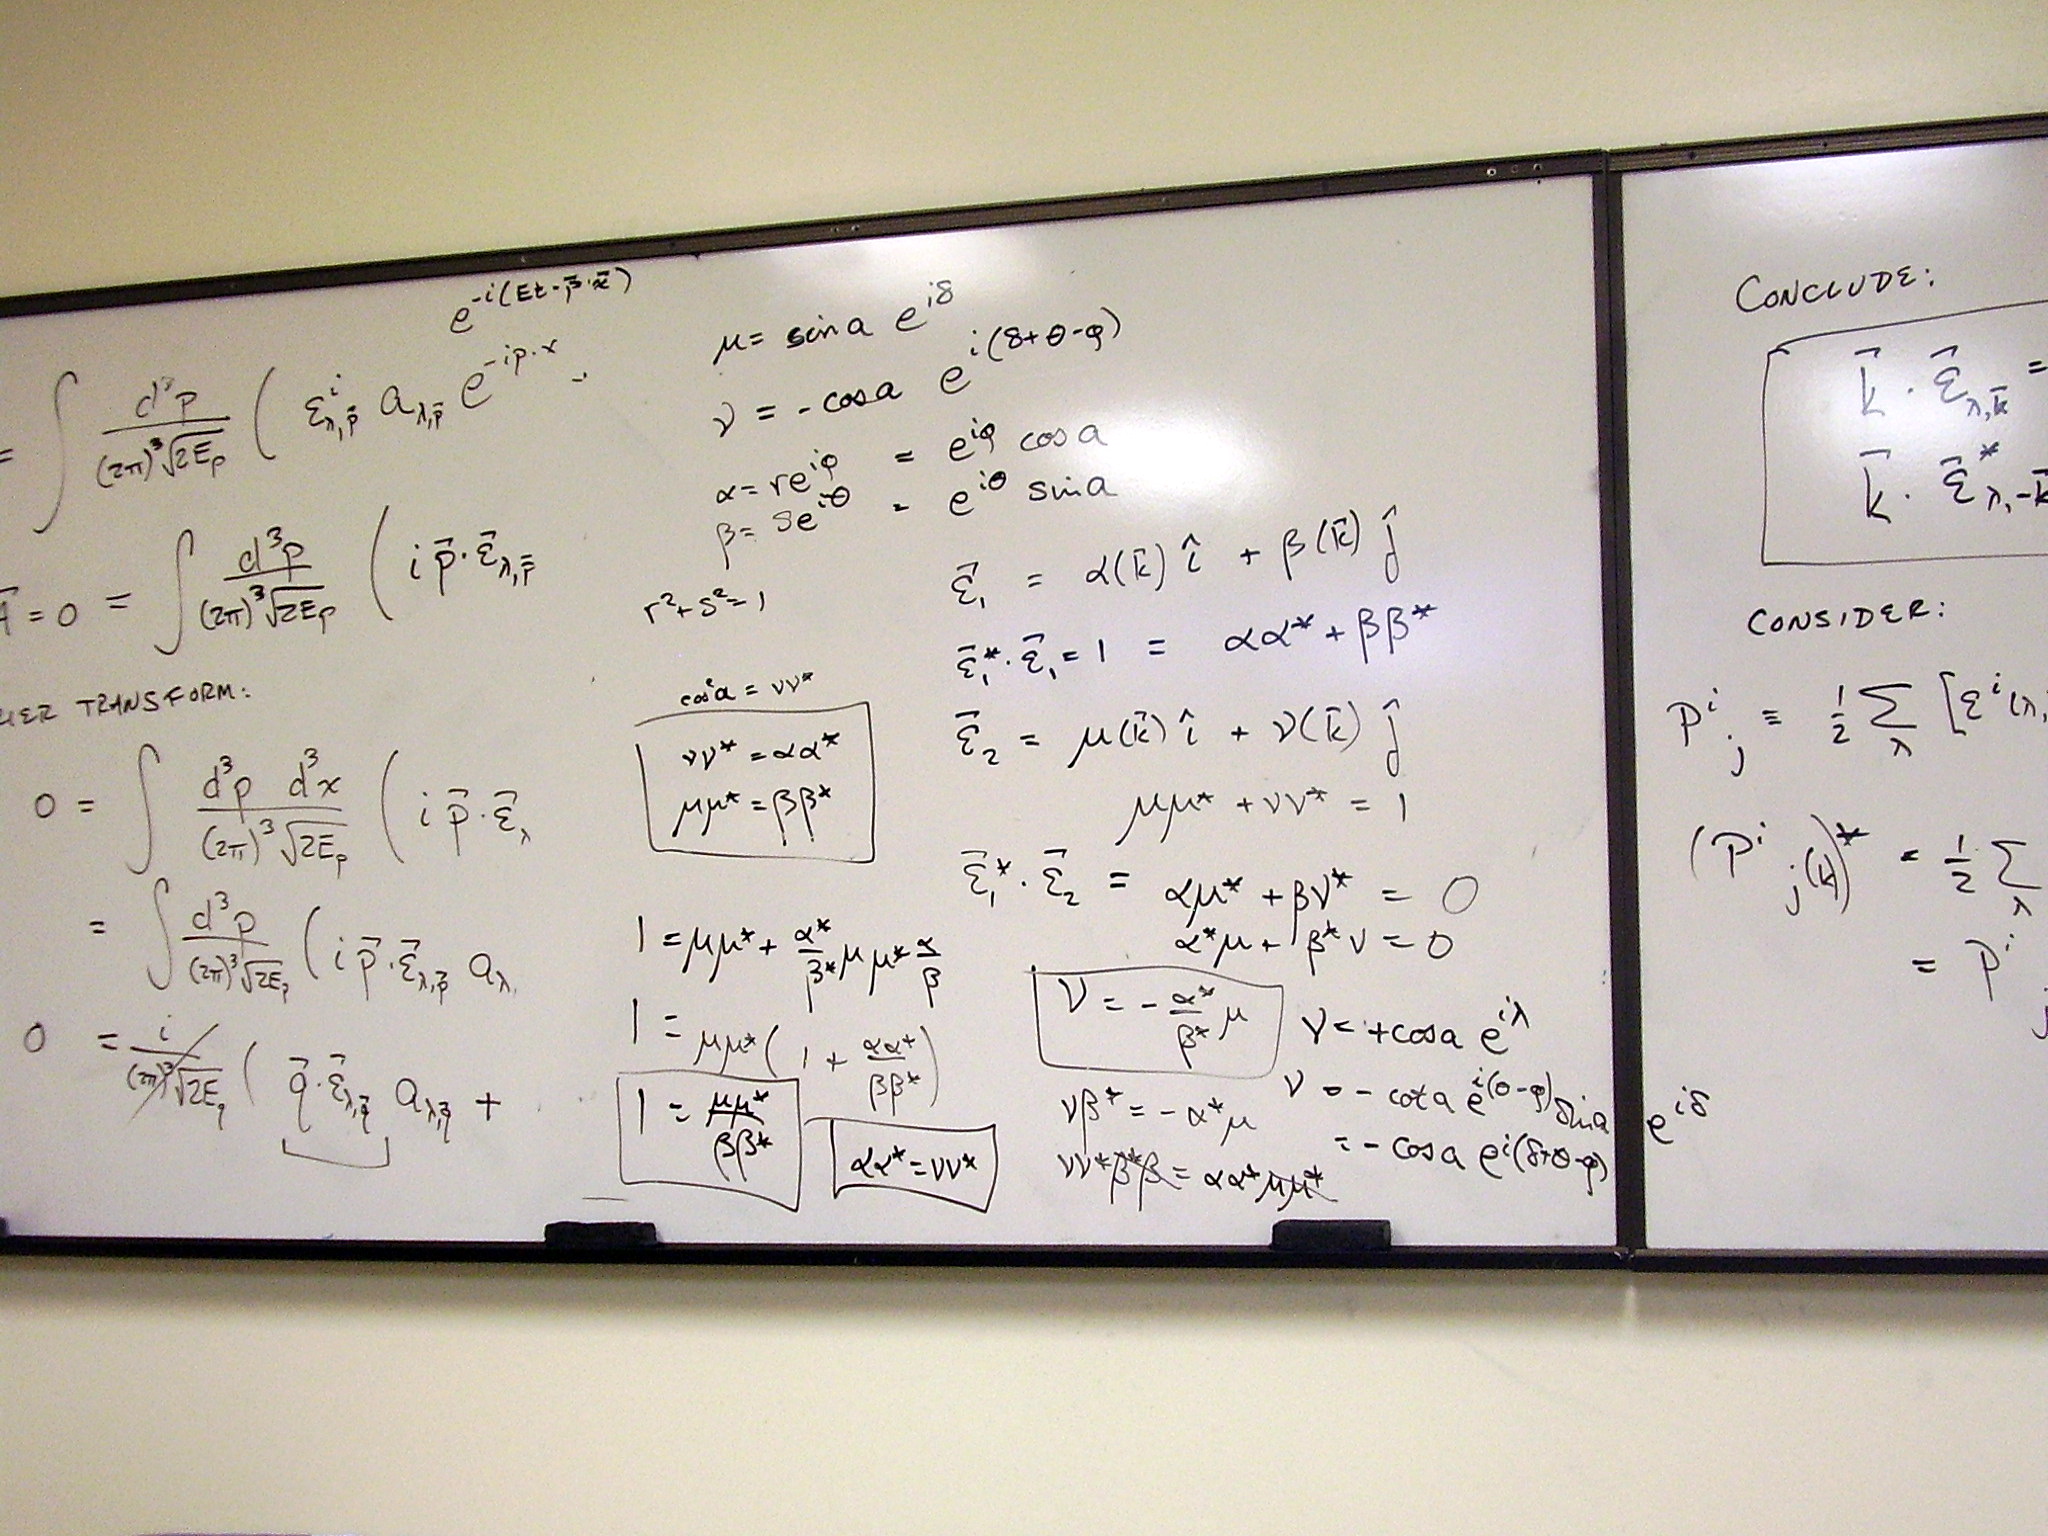 e^{-i(Et-p⃗·x⃗)}
= ∫ d³p/((2π)³√2E_p) ( ε^i_{λ,p⃗} a_{λ,p⃗} e^{-ip·x}
A⃗ = 0 = ∫ d³p/((2π)³√2E_p) ( i p⃗·ε⃗_{λ,p⃗}
TRANSFORM:
0 = ∫ d³p d³x/((2π)³√2E_p) ( i p⃗·ε⃗_λ
= ∫ d³p/((2π)³√2E_p) ( i p⃗·ε⃗_{λ,p⃗} a_λ
0 = i/((2π)³√2E_q) ( q⃗·ε⃗_{λ,q⃗} a_{λ,q⃗} +
μ = sin a e^{iδ}
ν = -cos a e^{i(δ+θ-φ)}
α = re^{iφ} = e^{iφ} cos a
β = se^{iθ} = e^{iθ} sin a
r²+s²=1
cos²a = νν*
νν* = αα*
μμ* = ββ*
1 = μμ* + α*/β* μμ* α/β
1 = μμ* ( 1 + αα*/ββ* )
1 = μμ*/ββ*
αα* = νν*
ε⃗₁ = α(k⃗) î + β(k⃗) ĵ
ε⃗₁*·ε⃗₁ = 1 = αα* + ββ*
ε⃗₂ = μ(k⃗) î + ν(k⃗) ĵ
μμ* + νν* = 1
ε⃗₁*·ε⃗₂ = αμ* + βν* = 0
α*μ + β*ν = 0
ν = - α*/β* μ
νβ* = -α*μ
νν*β*β = αα*μμ*
ν = +cos a e^{iλ}
ν = -cot a e^{i(θ-φ)} sin a e^{iδ}
= -cos a e^{i(δ+θ-φ)}
CONCLUDE:
k⃗·ε⃗_{λ,k⃗} =
k⃗·ε⃗*_{λ,-k⃗}
CONSIDER:
P^i_j ≡ ½ Σ_λ [ε^i(λ,
(P^i_j(k))* = ½ Σ_λ
= P^i_j